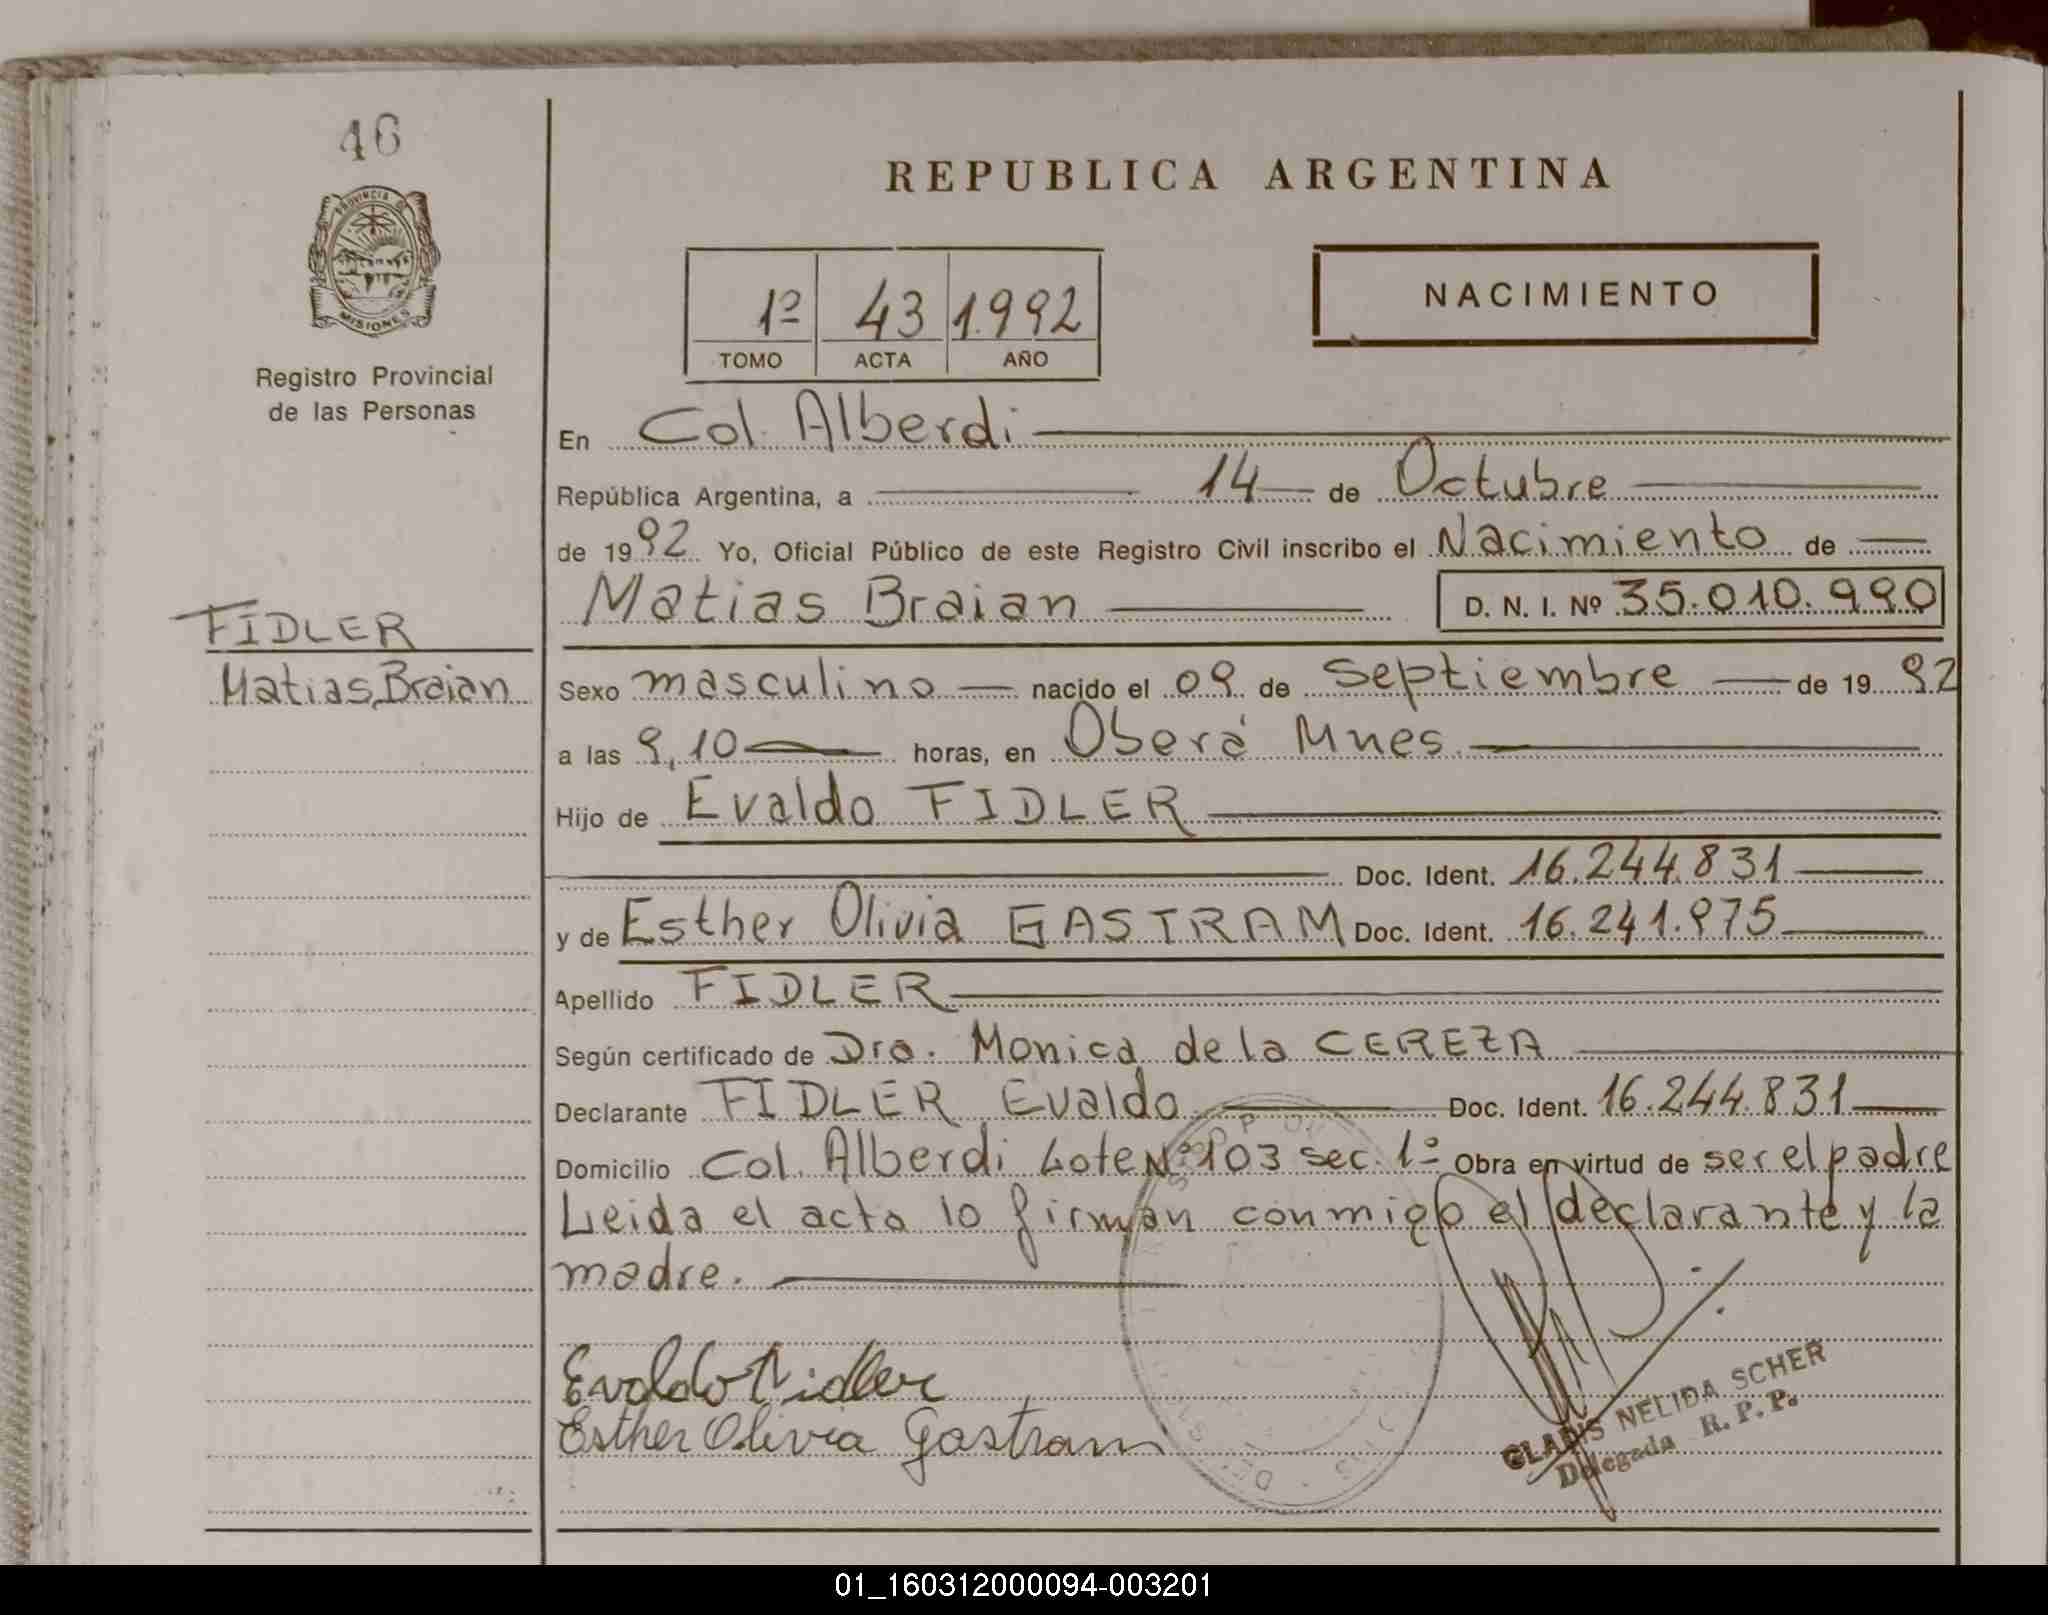 46
PROVINCIA DE
MISIONES
Registro Provincial
de las Personas
FIDLER
Matias Braian
REPUBLICA ARGENTINA
1º 43 1.992
TOMO ACTA AÑO
NACIMIENTO
En Col. Alberdi
República Argentina, a 14 de Octubre
de 1992 Yo, Oficial Público de este Registro Civil inscribo el Nacimiento de
Matias Braian D. N. I. Nº 35.010.990
Sexo masculino nacido el 09 de septiembre de 1992
a las 9,10 horas, en Oberá Mnes.
Hijo de Evaldo FIDLER
Doc. Ident. 16.244.831
y de Esther Olivia GASTRAM Doc. Ident. 16.241.975
Apellido FIDLER
Según certificado de Dra. Monica de la CEREZA
Declarante FIDLER Evaldo Doc. Ident. 16.244.831
Domicilio Col. Alberdi Lote Nº 103 sec. 1º Obra en virtud de ser el padre
Leida el acta lo firman conmigo el declarante y la
madre.
Evaldo Fidler
Esther Olivia Gastram
GLADIS NELIDA SCHER
Delegada R. P. P.
01_160312000094-003201